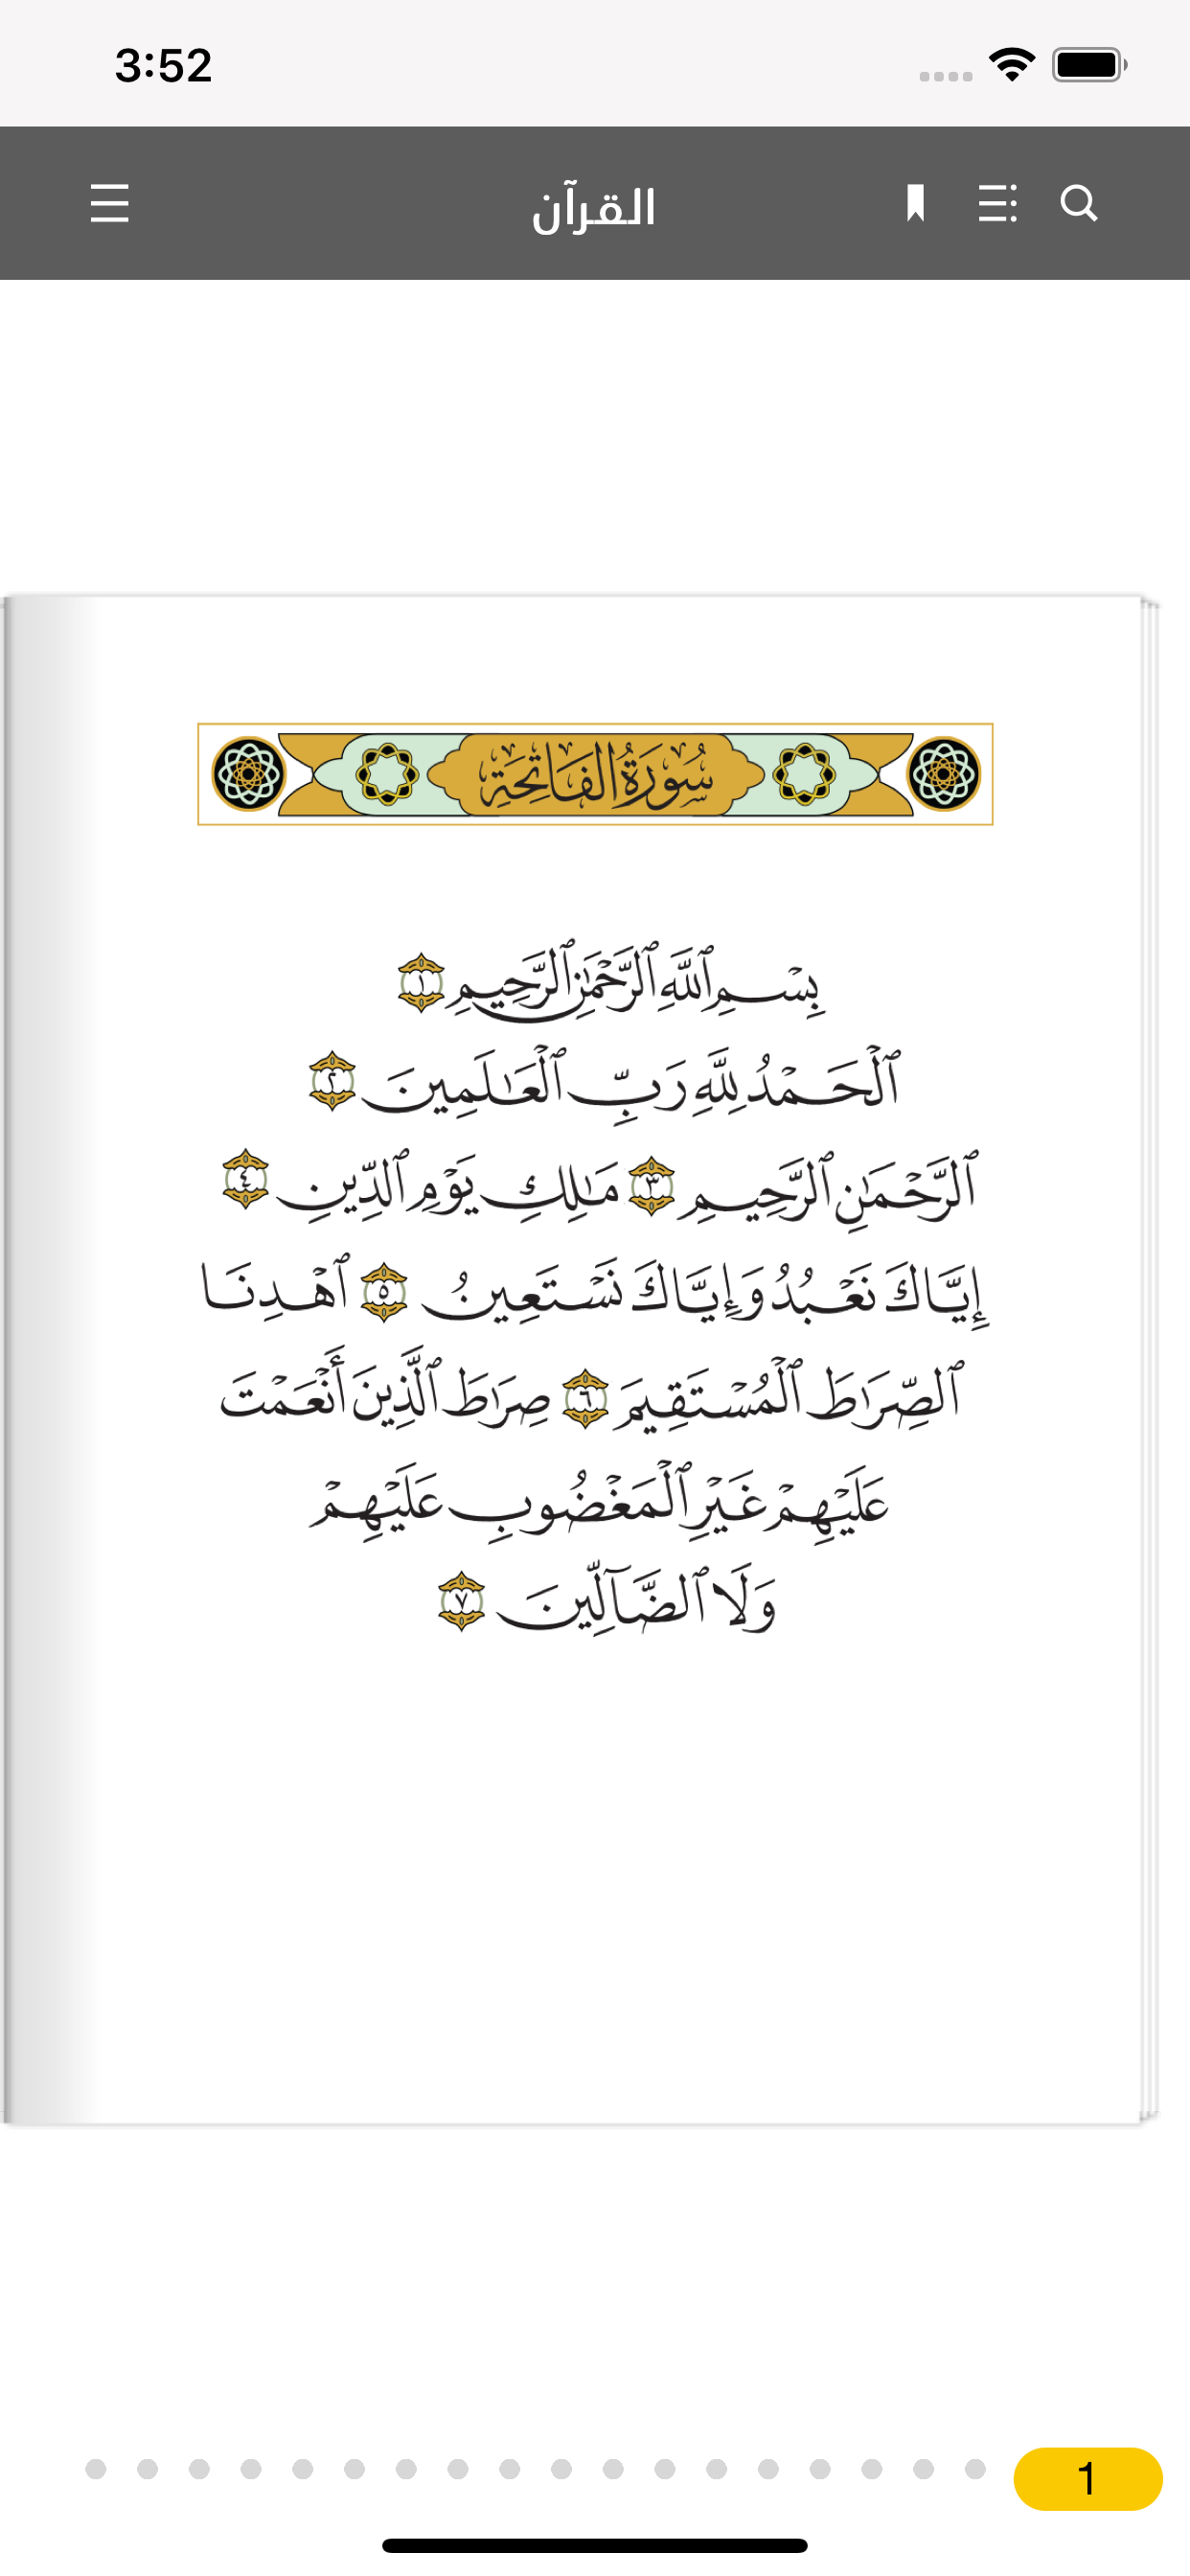 3:52
القرآن
سُورَةُ الفَاتِحَةِ
بِسْمِ ٱللَّهِ ٱلرَّحْمَٰنِ ٱلرَّحِيمِ ١
ٱلْحَمْدُ لِلَّهِ رَبِّ ٱلْعَٰلَمِينَ ٢
ٱلرَّحْمَٰنِ ٱلرَّحِيمِ ٣ مَٰلِكِ يَوْمِ ٱلدِّينِ ٤
إِيَّاكَ نَعْبُدُ وَإِيَّاكَ نَسْتَعِينُ ٥ ٱهْدِنَا
ٱلصِّرَٰطَ ٱلْمُسْتَقِيمَ ٦ صِرَٰطَ ٱلَّذِينَ أَنْعَمْتَ
عَلَيْهِمْ غَيْرِ ٱلْمَغْضُوبِ عَلَيْهِمْ
وَلَا ٱلضَّآلِّينَ ٧
1